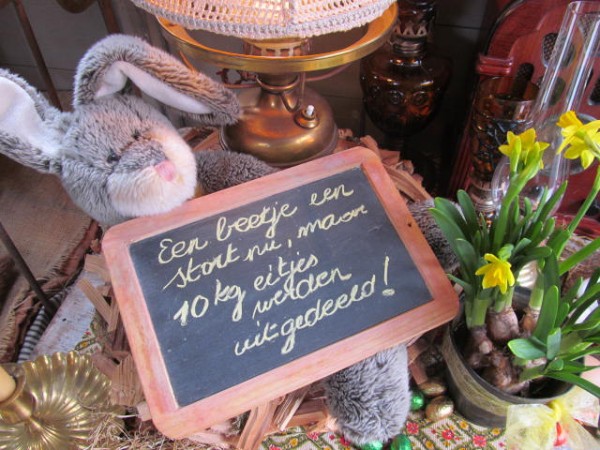 Een beetje een
stort nu, maar
10 kg eitjes
werden
uitgedeeld!